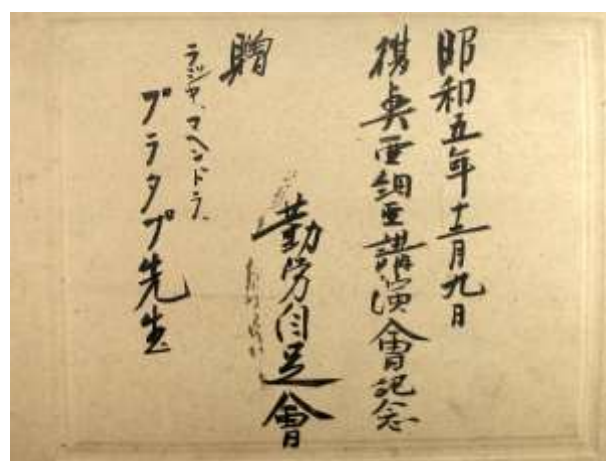 昭和五年十二月九日
亜細亜講演會記念
勤労自足會
贈
ラジヤ、マヘンドラ、
プラタプ先生